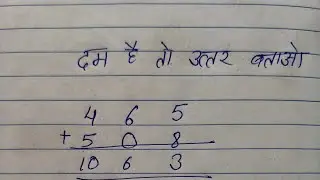 दम है तो उत्तर बताओ
4 6 5
+ 5 0 8
10 6 3